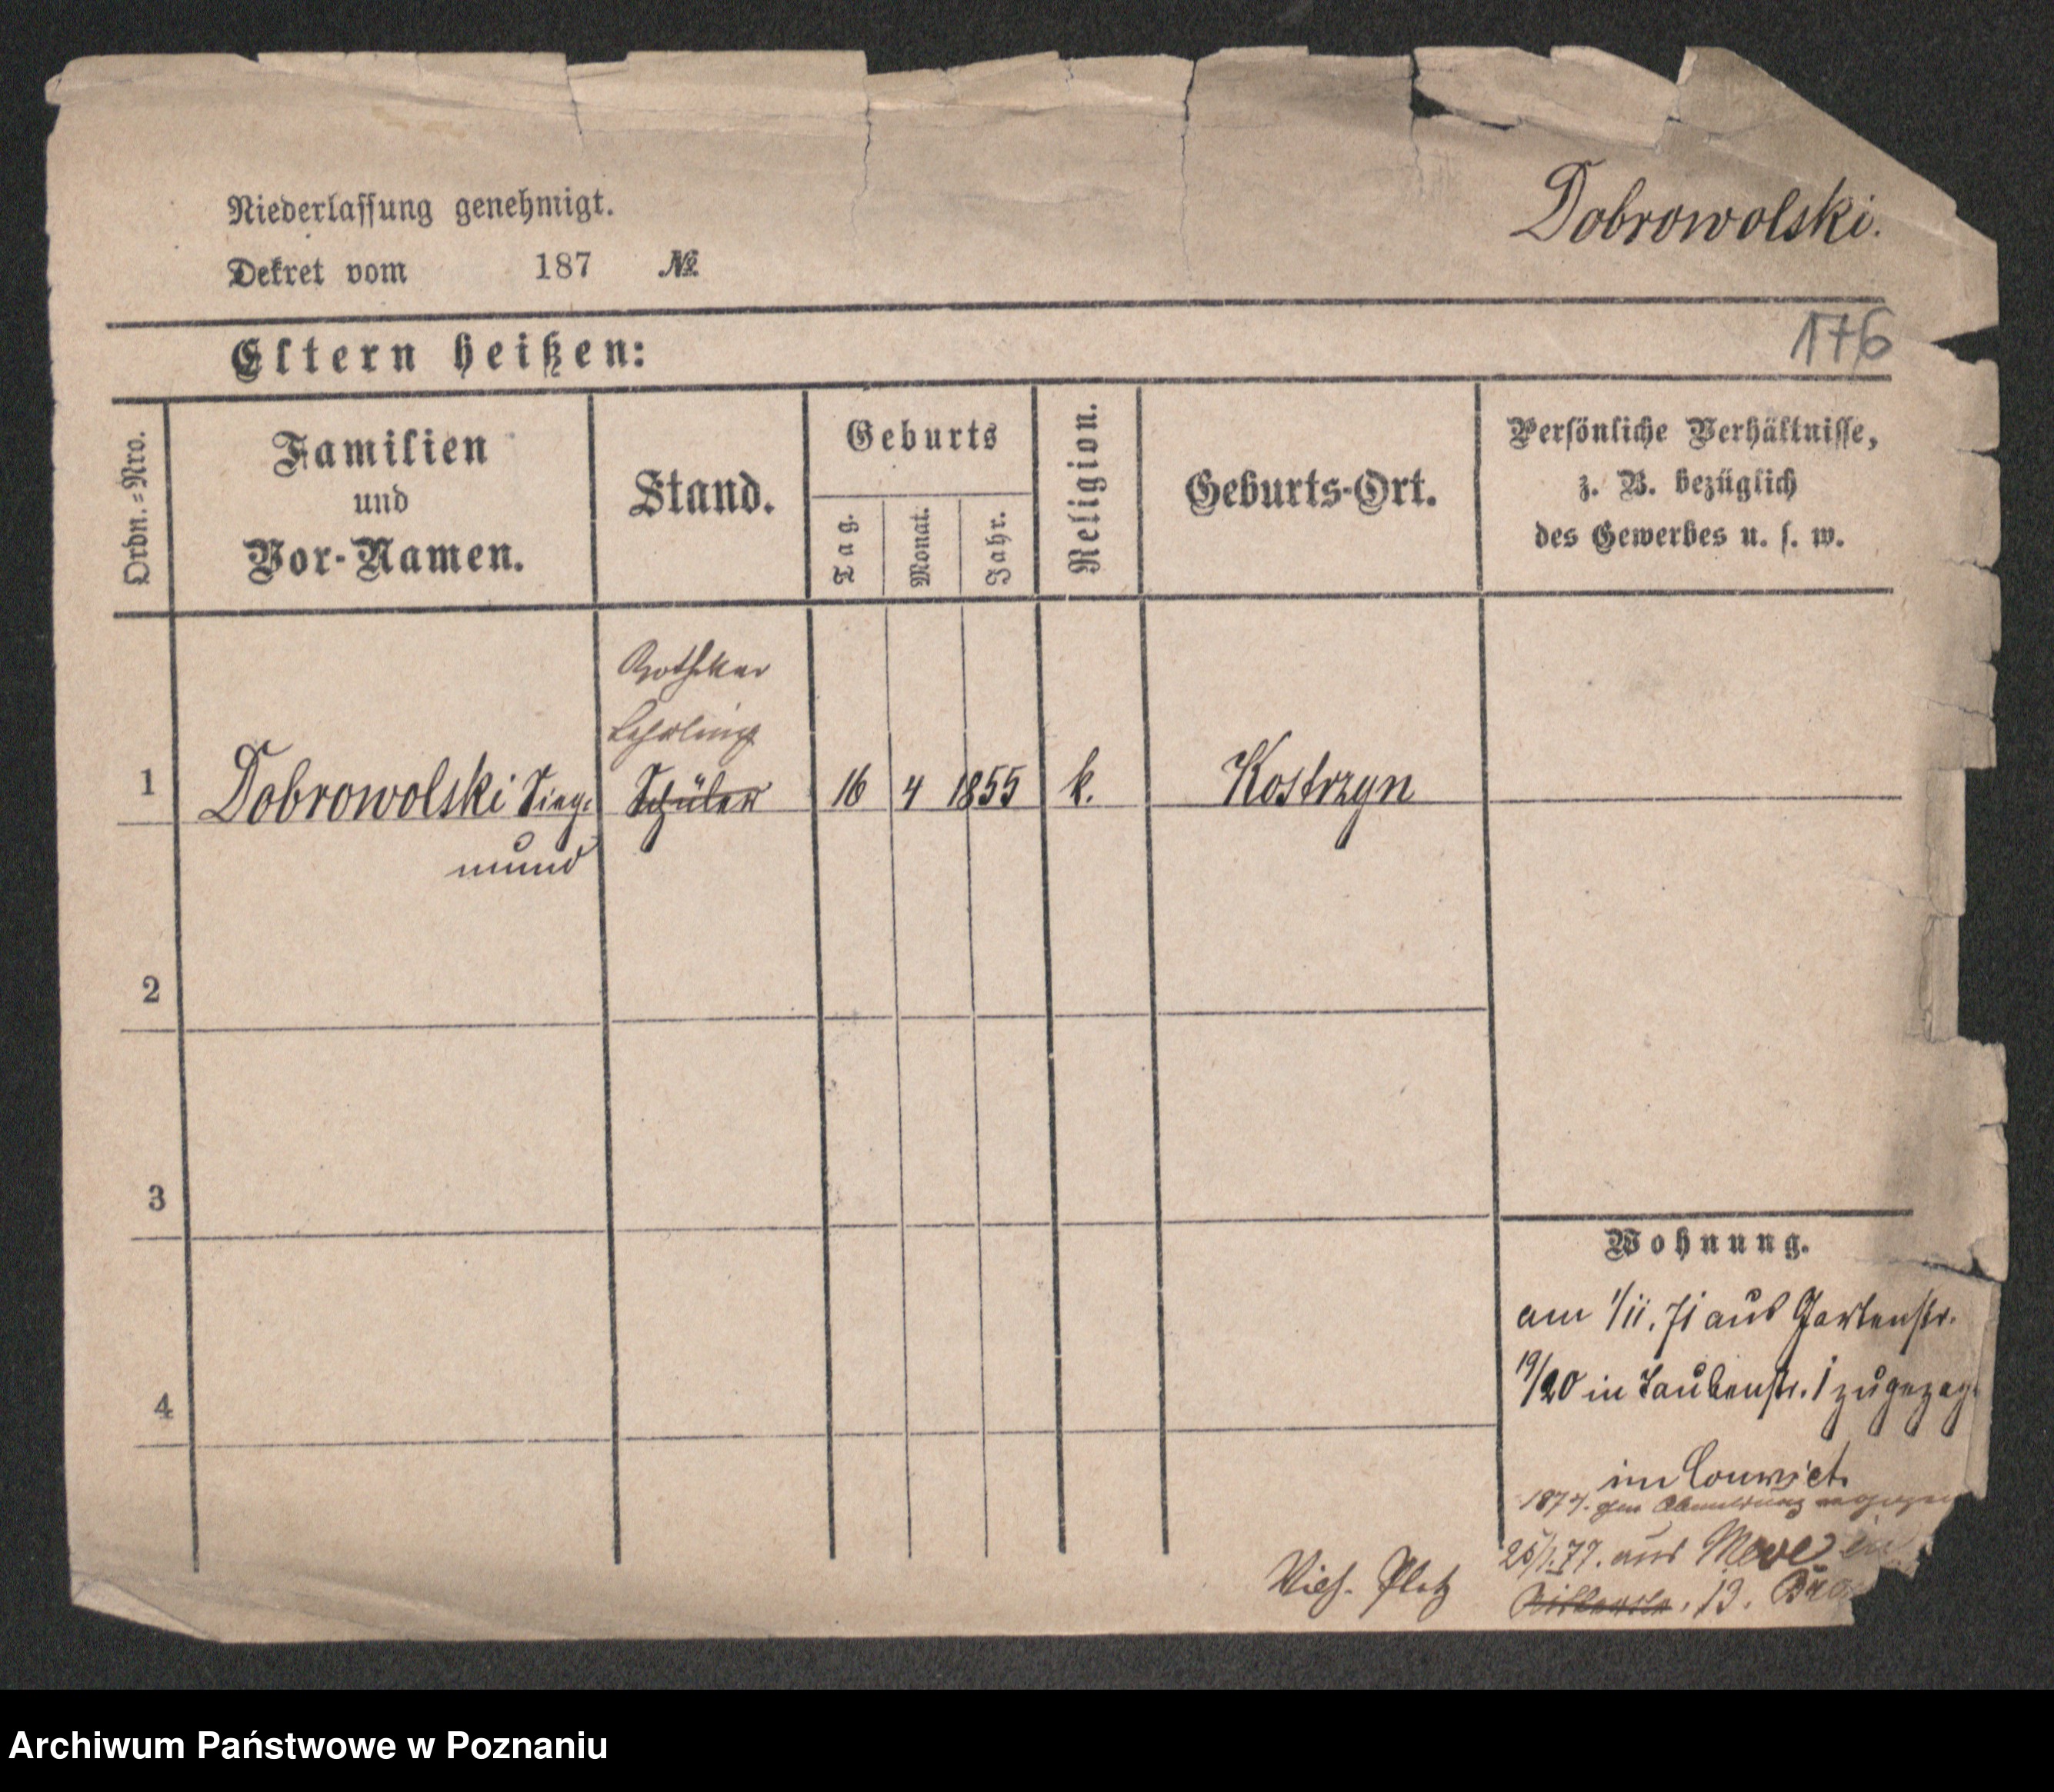 Dobrowolski.
Niederlassung genehmigt.
Dekret vom 187 №
176
Eltern heißen:
Ordn.=Nro.
Familien
und
Vor-Namen.
Stand.
Geburts
Tag.
Monat.
Jahr.
Religion.
Geburts-Ort.
Persönliche Verhältnisse,
z. B. bezüglich
des Gewerbes u. s. w.
Apotheker
Lehrling
1 Dobrowolski Sieg- Schüler 16 4 1855 k. Kostrzyn
mund
2
3
4
Wohnung.
am 1/11. 71 aus Gartenstr.
19/20 in Taubenstr. 1 zugezog.
im Convict.
1874. Abmeldung
25/1.77. aus Mewe in
13.
Platz
Archiwum Państwowe w Poznaniu